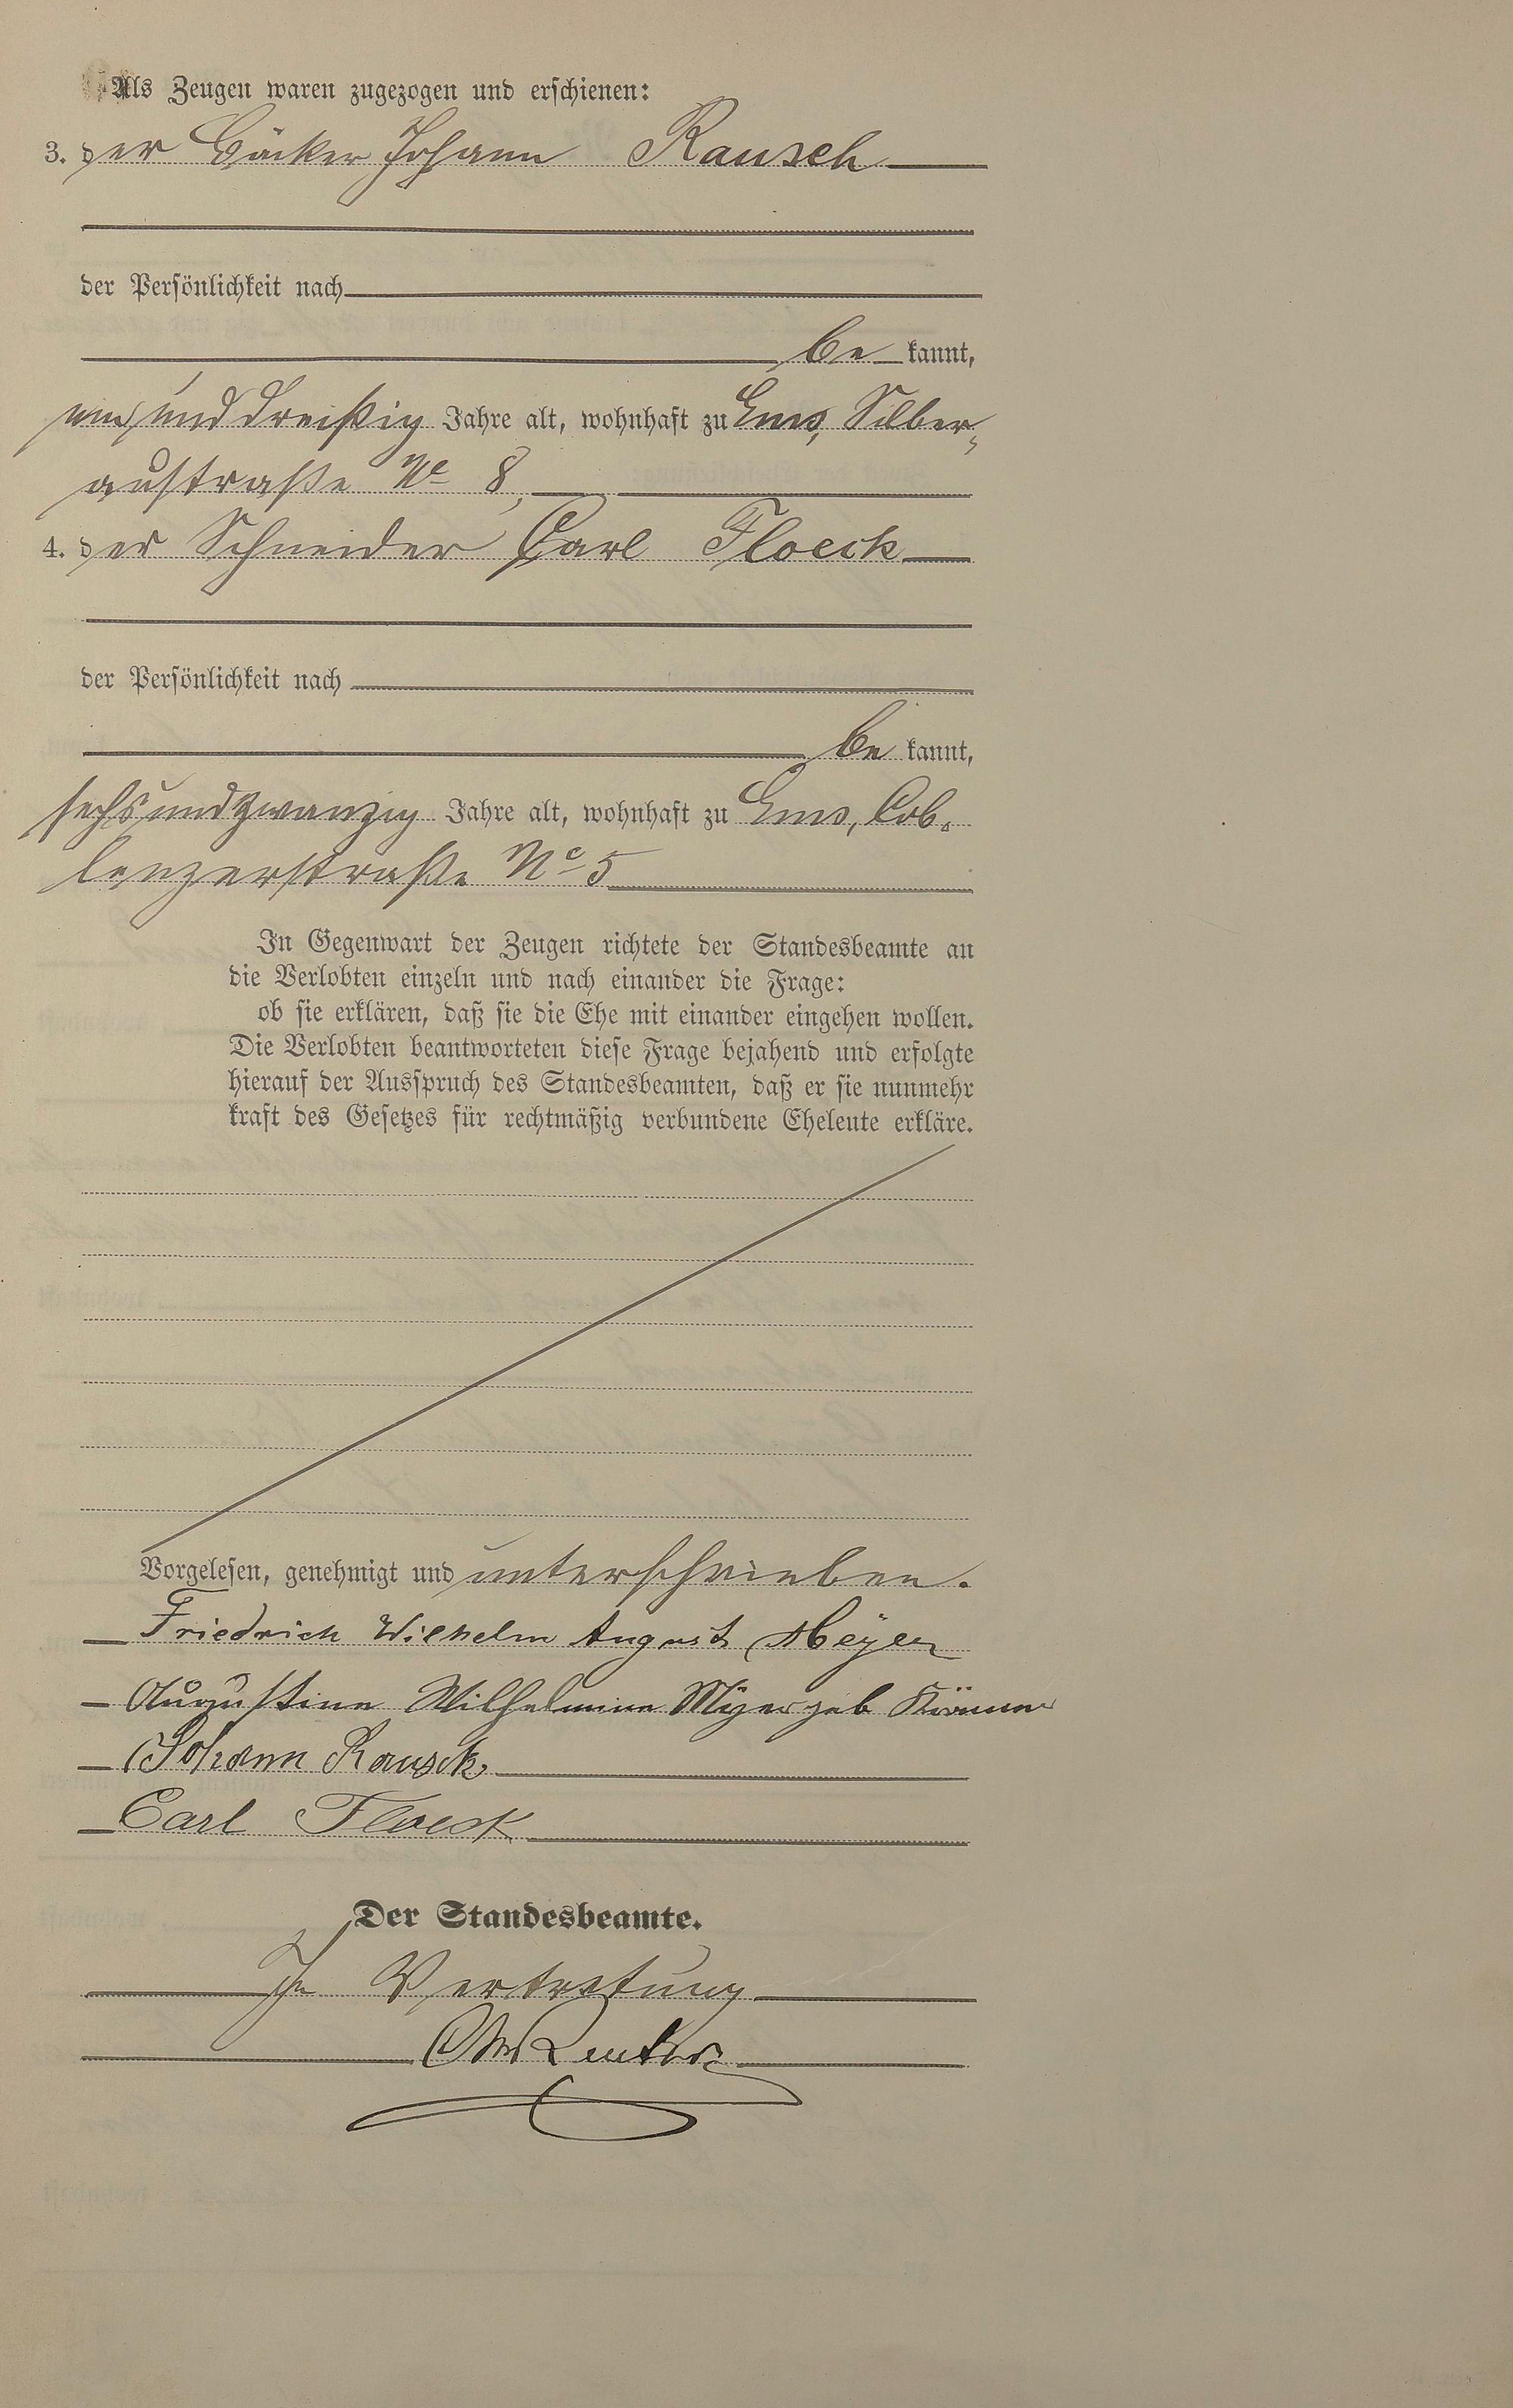 Als Zeugen waren zugezogen und erschienen:
3. der Bäcker Johann Rausch
der Persönlichkeit nach
be kannt,
ein und dreißig Jahre alt, wohnhaft zu Ems, Silber-
austraße No 8,
4. der Schneider Carl Floeck
der Persönlichkeit nach
be kannt,
sechs und zwanzig Jahre alt, wohnhaft zu Ems, Cob-
lenzerstraße No 5
In Gegenwart der Zeugen richtete der Standesbeamte an
die Verlobten einzeln und nach einander die Frage:
ob sie erklären, daß sie die Ehe mit einander eingehen wollen.
Die Verlobten beantworteten diese Frage bejahend und erfolgte
hierauf der Ausspruch des Standesbeamten, daß er sie nunmehr
kraft des Gesetzes für rechtmäßig verbundene Eheleute erkläre.
Vorgelesen, genehmigt und unterschrieben.
Friedrich Wilhelm August Meyer
Augustine Wilhelmine Meyer geb
Johann Rausch
Carl Floeck
Der Standesbeamte.
In Vertretung